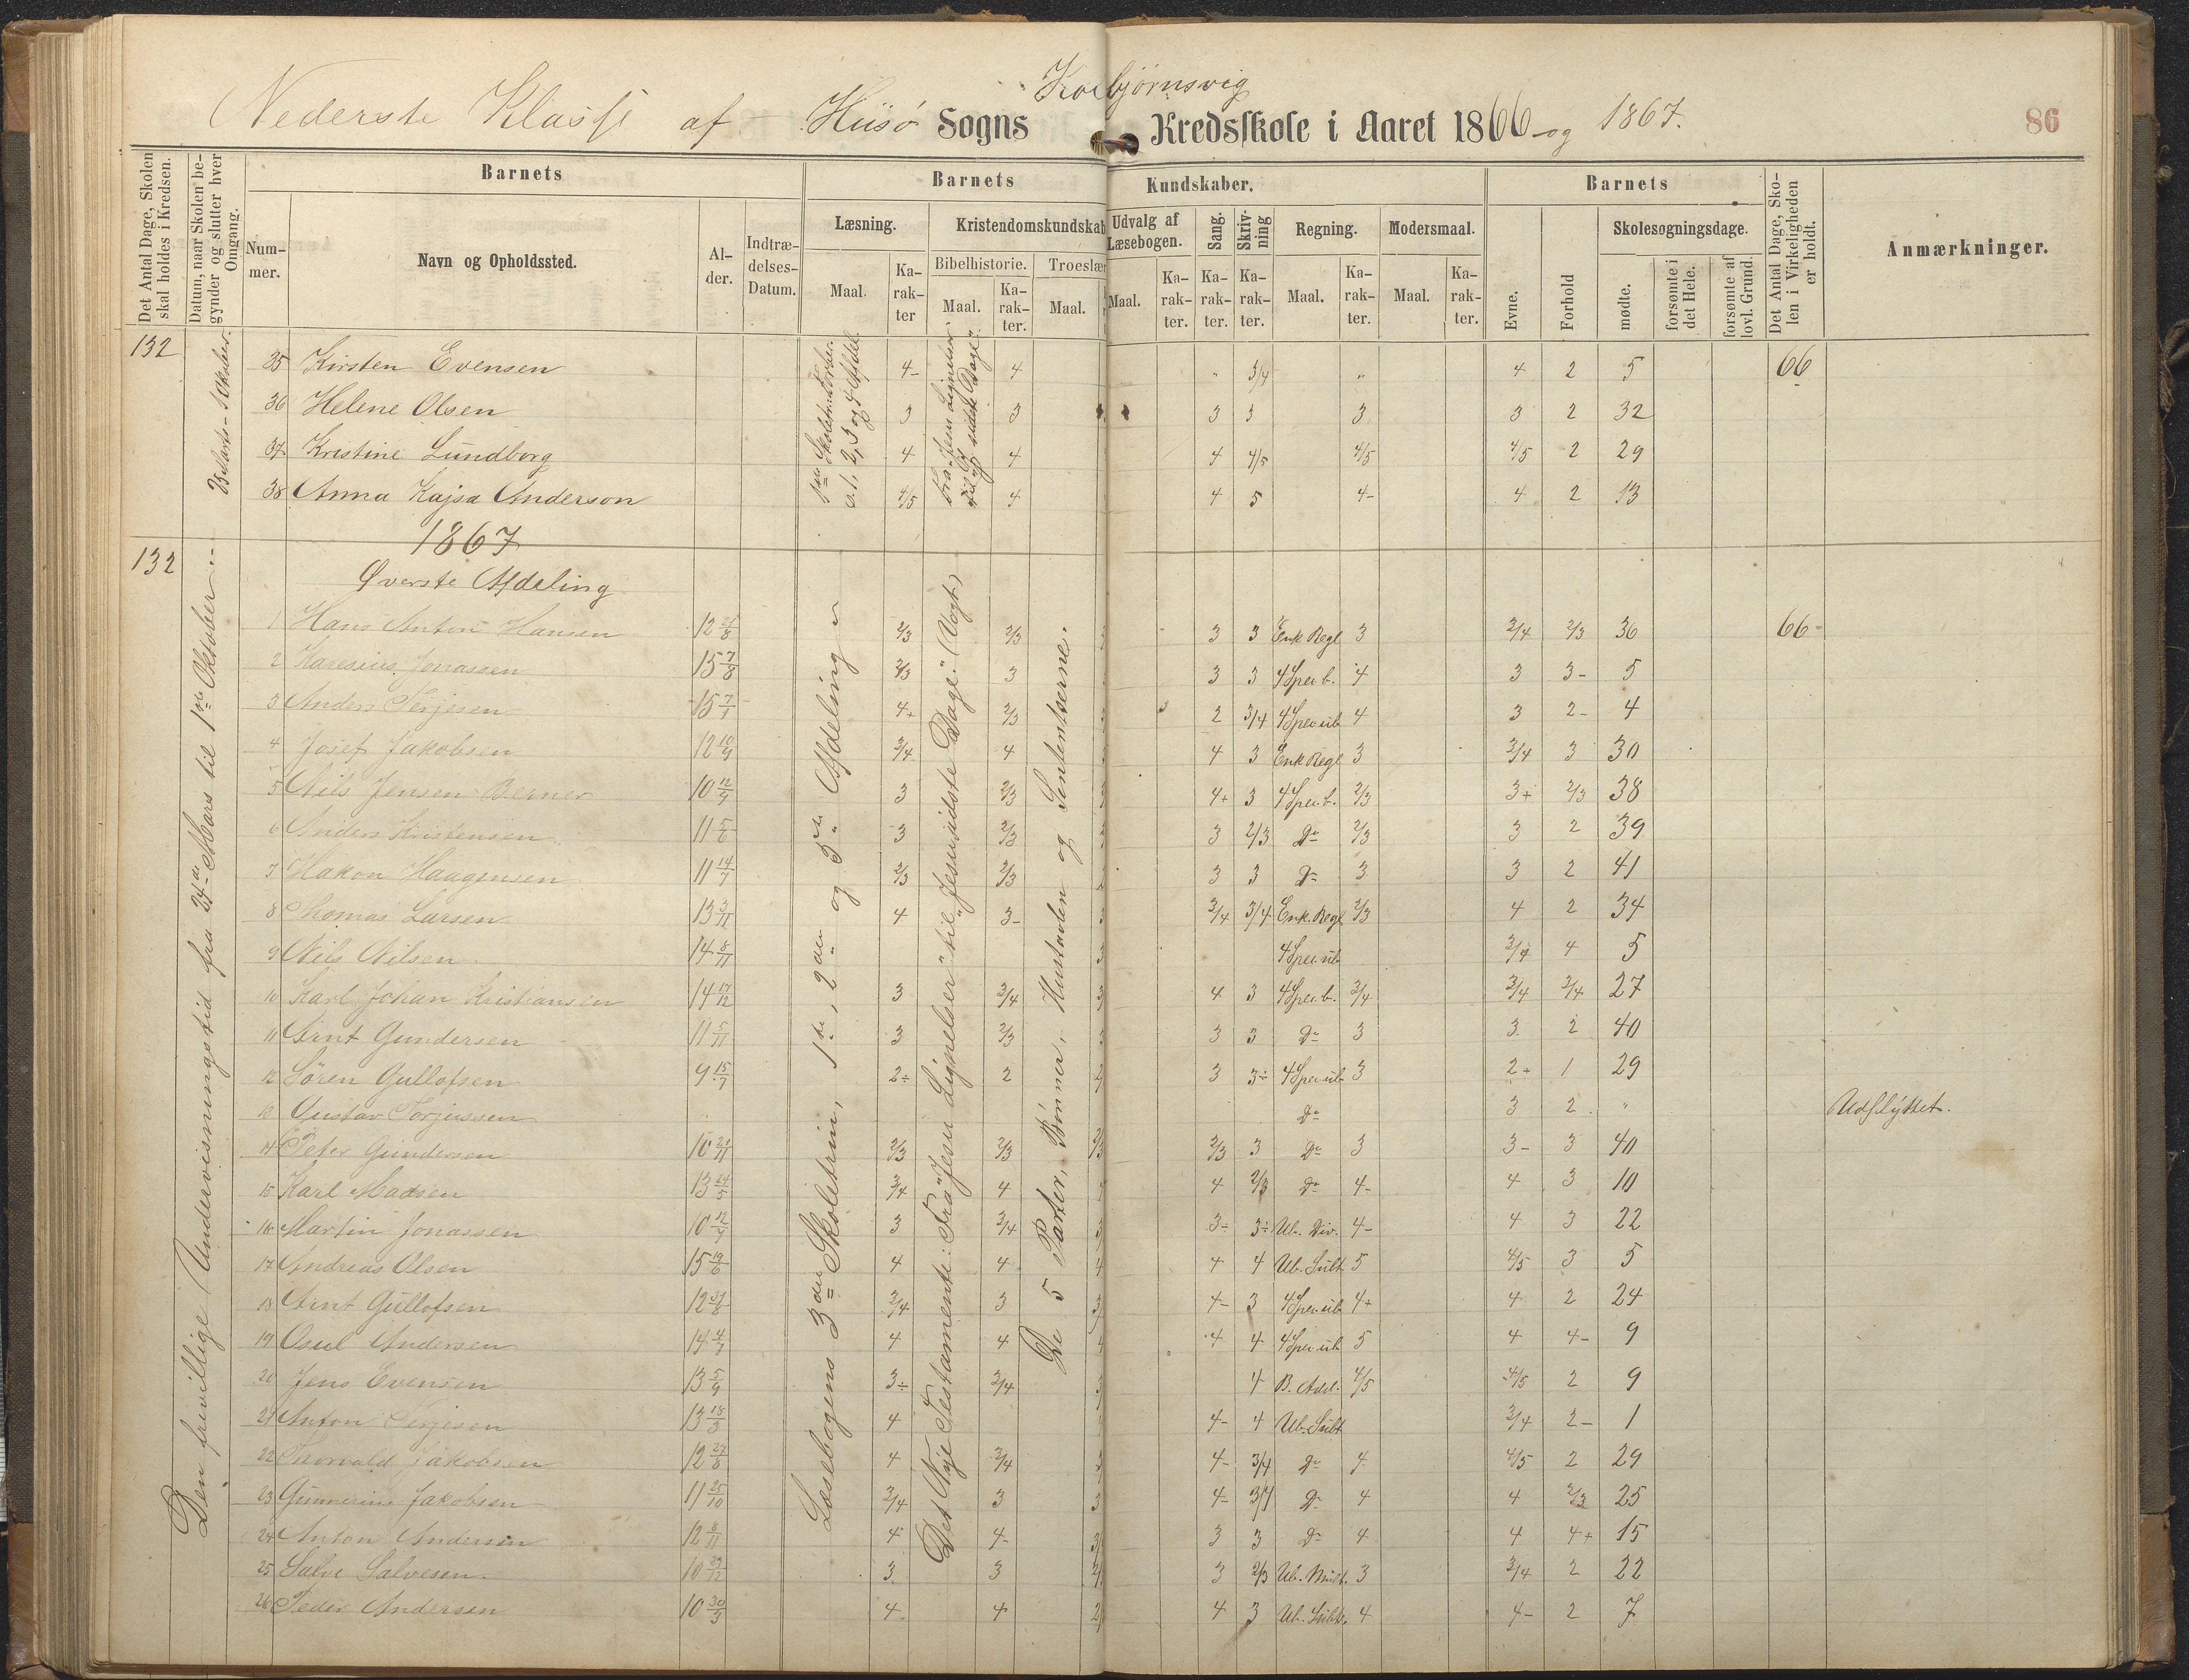 Kolbjørnsvig
Nederste Klasse af Hisö Sogns Kredsskole i Aaret 1866 og 1867.
86
Det Antal Dage, Skolen skal holdes i Kredsen.
Datum, naar Skolen begynder og slutter hver Omgang.
Barnets
Barnets Kundskaber.
Barnets
Det Antal Dage, Skolen i Virkeligheden er holdt.
Anmærkninger.
Nummer.
Navn og Opholdssted.
Alder.
Indtrædelses-Datum.
Læsning.
Kristendomskundskab
Udvalg af Læsebogen.
Sang.
Skrivning
Regning.
Modersmaal.
Evne.
Forhold
Skolesøgningsdage.
Bibelhistorie.
Troeslær
Maal.
Karakter
Maal.
Karakter.
Maal.
Maal.
Karakter.
Karakter.
Karakter.
Maal.
Karakter.
Maal.
Karakter.
mødte.
forsømte i det Hele.
forsømte af lovl. Grund.
132
35 Kirsten Evensen 4- 4 " 3/4 " 4 2 5 66
36 Helene Olsen 3 3 3 3 3 3 2 32
37 Kristine Lundborg 4 4 4 4/5 4/5 4/5 2 29
38 Anna Kajsa Anderson 4/5 4 4 5 4- 4 2 13
1867
132
Øverste Afdeling
Den frivillige Undervisningstid fra 24de Mars til 1ste Oktober
Læsebogens 3die Skoletrin, 1ste, 2den og 3die Afdeling
Det Nye Testamente: Fra "Jesu Lignelser" til "Jesu sidste Dage." (Vogt)
De 5 Parter, Bønnen, Hustavlen og Sententserne.
1 Hans Anton Hansen 12 21/8 2/3 2/3 3 3 Enk Regl 3 3/4 2/3 36 66
2 Karesius Jonassen 15 7/8 2/3 3 3 3 4 Spec b. 4 3 3- 5
3 Anders Terjesen 15 7/1 4+ 2/3 2 3/4 4 Spec ub 4 3 2- 4
4 Josef Jakobsen 12 10/9 3/4 4 4 3 Enk Regl 3 3/4 3 30
5 Nils Jensen Berner 10 12/9 3 2/3 4+ 3 4 Spec. b. 2/3 3+ 2/3 38
6 Anders Kristensen 11 5/6 3 2/3 3 2/3 Do 2/3 3 2 39
7 Hakon Haagensen 11 14/7 2/3 2/3 3 3 Do 3 3 2 41
8 Thomas Larsen 13 3/11 4 3- 3/4 3/4 Enk. Regl 2/3 4 2 34
9 Nils Nilsen 14 8/11 4 Spec ub 3/4 4 5
10 Karl Johan Kristiansen 14 17/12 3 3/4 4 3 4 Spec. b. 3/4 3/4 3/4 27
11 Arnt Gundersen 11 5/11 3 2/3 3 3 Do 3 3 2 40
12 Sören Gullofsen 9 15/7 2÷ 2 3 3÷ 4 Spec ub 3 2+ 1 29
13 Gustav Torjussen Do 3 2 " Udflyttet.
14 Peter Gundersen 10 21/11 2/3 2/3 2/3 3 Do 3 3- 3 40
15 Karl Madsen 13 24/5 3/4 4 4 2/3 Do 4- 4 3 10
16 Martin Jonassen 10 12/9 3 3/4 3÷ 3÷ Ub. Div. 4- 4 3 22
17 Andreas Olsen 15 19/6 4 4 4 4 Ub. Subt 5 4/5 3 5
18 Arnt Gullofsen 12 31/8 3/4 3 4- 3 4 Spec ub 4+ 4 2 24
19 Osul Andersen 14 4/7 4 4 4 4 4 Spec ub 5 4 4- 9
20 Jens Evensen 13 5/9 3÷ 3/4 4 B. Add. 4/5 4/5 2 9
21 Anton Terjesen 13 18/3 4 4- 4 Ub. Subt 3/4 2- 1
22 Thorvald Jakobsen 12 27/8 4 3/4 4- 3/4 Do 4 4/5 2 29
23 Gunnerius Jakobsen 11 25/10 3/4 3 4- 3/4 Do 4 4 2/3 25
24 Anton Andersen 12 8/11 4 4- 3 3 Do 4 4 4+ 15
25 Salve Salvesen 10 29/12 3 3 3 2/3 Ub. Mult. 3 3/4 2 22
26 Peder Andersen 10 30/3 4- 4 4 3 Ub. Subt. 4 4- 2 7